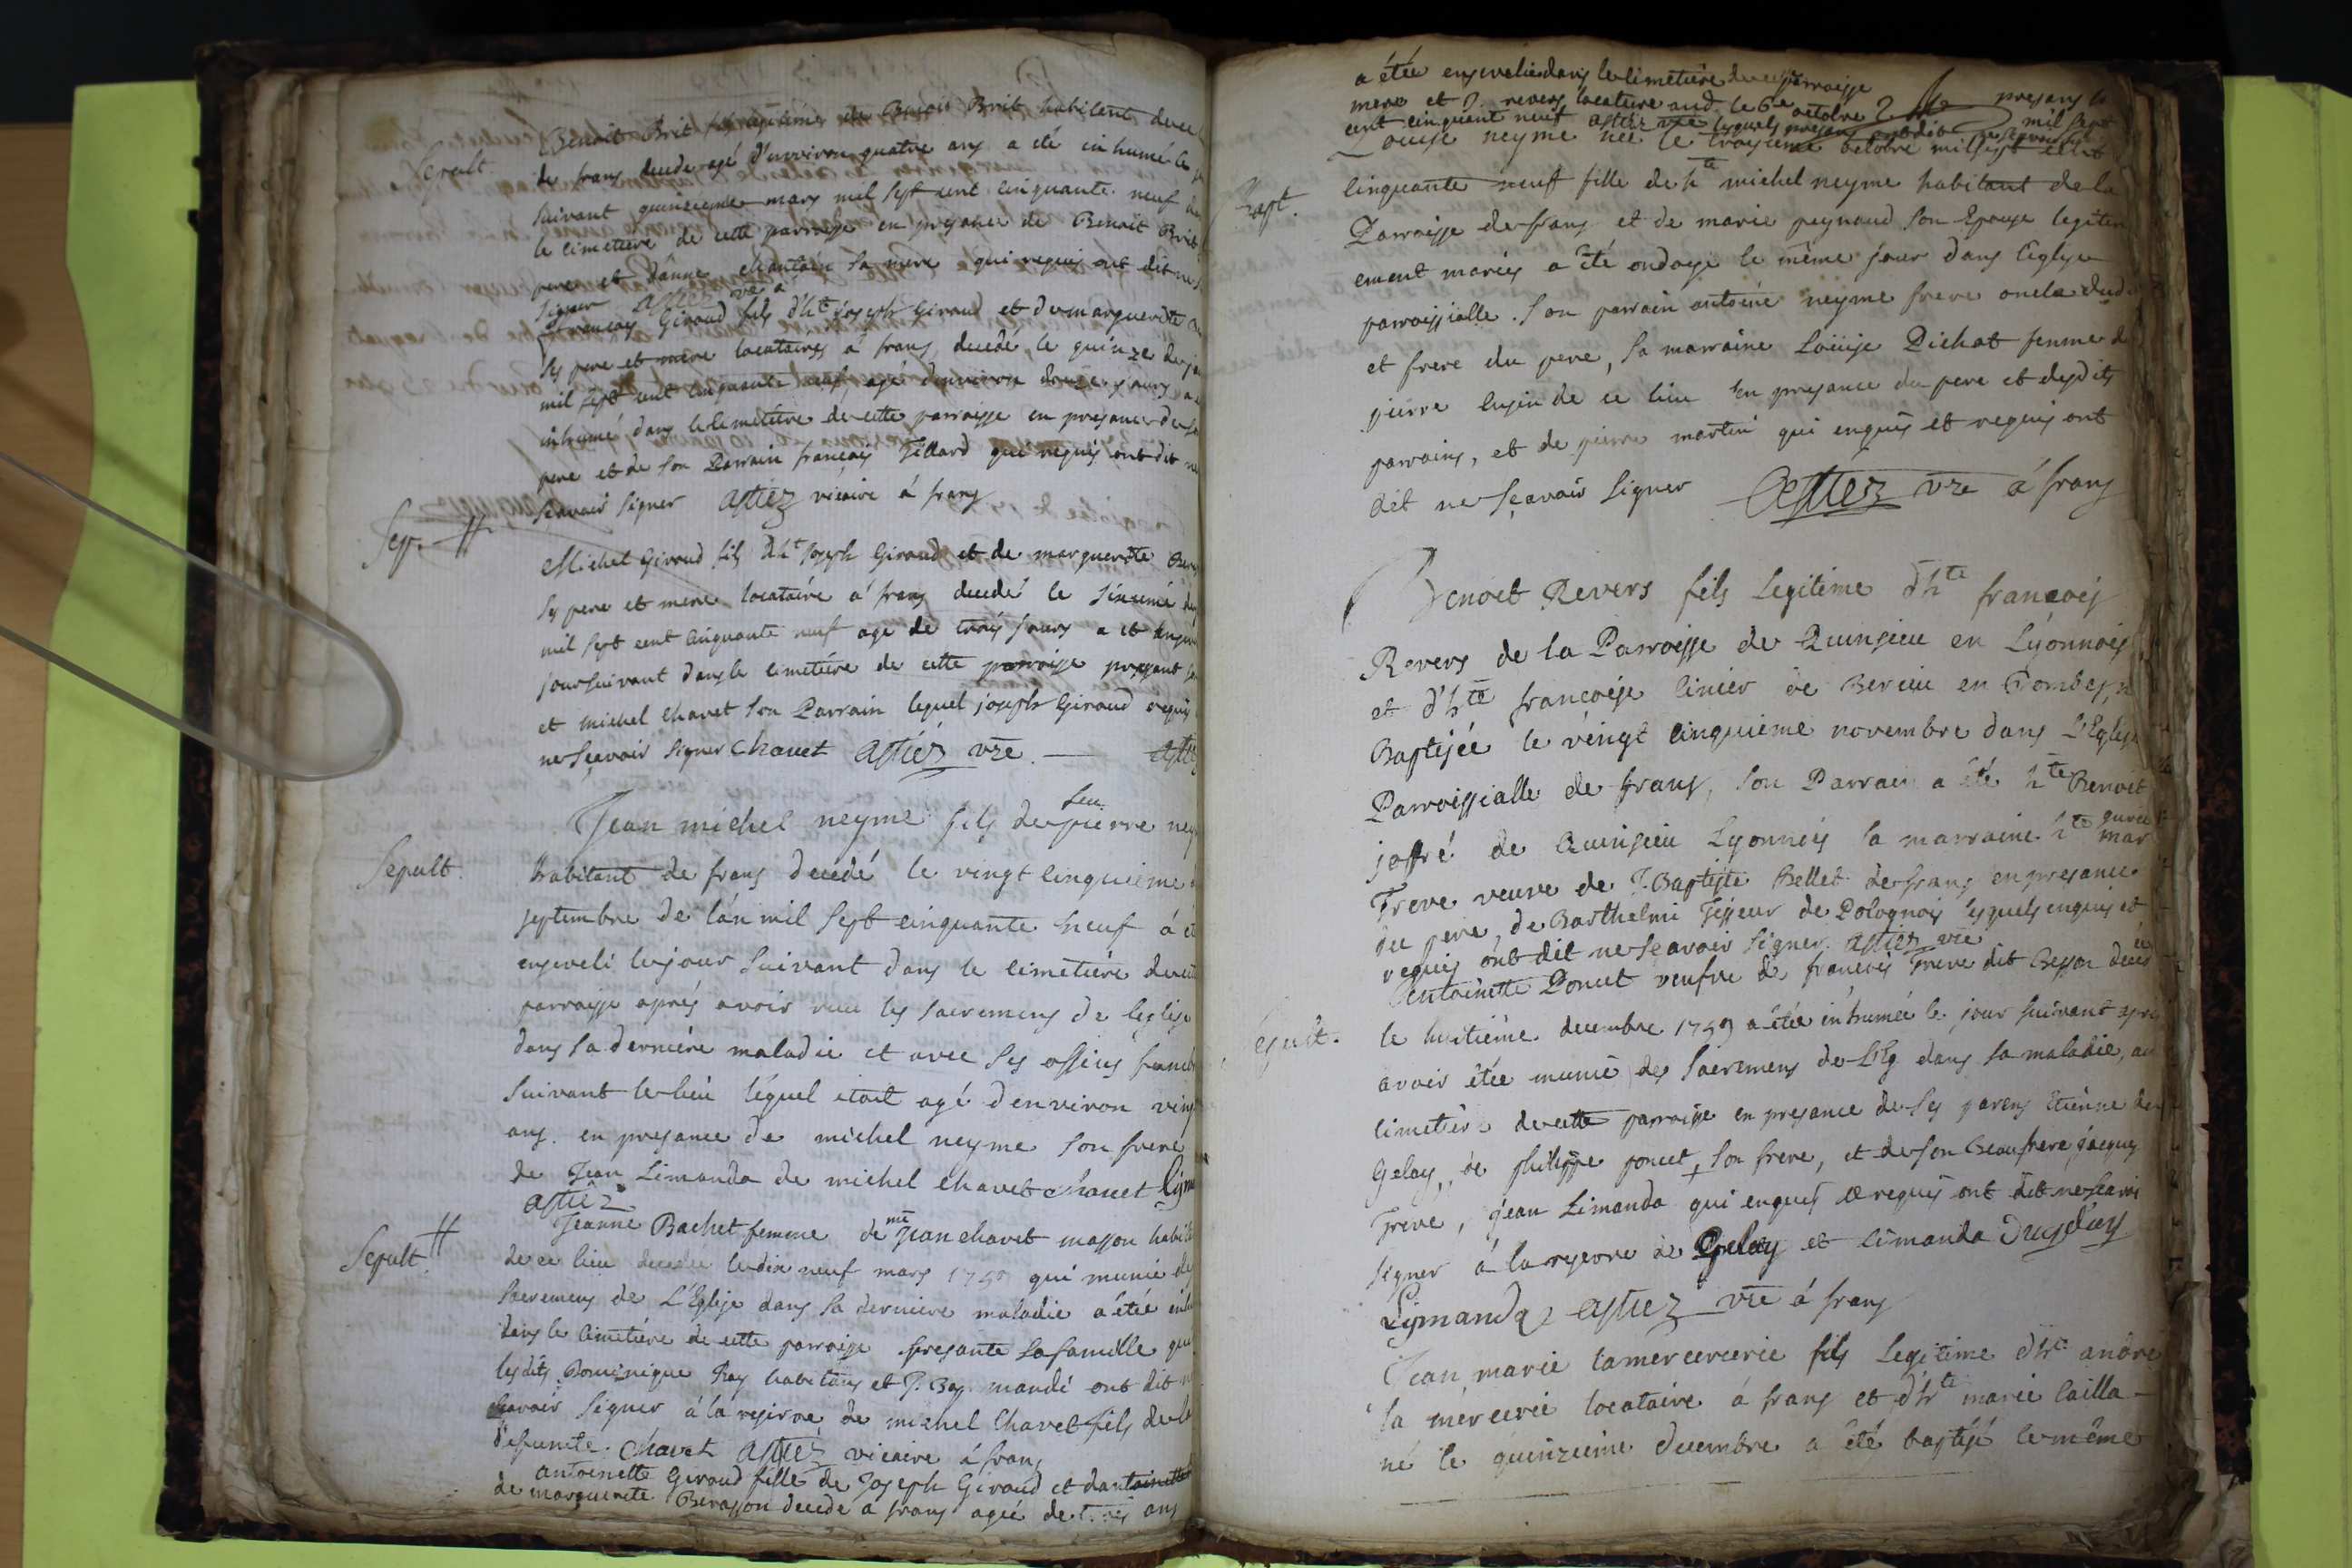 Benoit Brit fils legitime de Benoit Brit habitant de ce
Sepult.
de frans decede agé d'environ quatre ans a été inhumé le
suivant quinzieme mars mil sept cent cinquante neuf
le cimetiere de cette parroisse en presance de Benoit Brit
pere et d'anne chantain sa mere qui requis ont dit ne
signer astiez vre a
francois Giroud fils d'hte joseph Giroud et de marguerite
ses pere et mere locataires a frans, decedé le quinze de
mil sept cent cinquante neuf agé d'environ douze jours a
inhumé dans le cimetiére de cette parroisse en presance de
pere et de son Parrain francois Tillard qui requis ont dit
scavoir signer astiez vicaire á frans
Sep.
Michel Giroud fils d'hte joseph Giroud et de marguerite
ses pere et mere locataire a frans decedé le sixieme
mil sept cent cinquante neuf agé de trois jours a et
jour suivant dans le cimetiére de cette parroisse presant
et michel chavet son Parrain lequel joseph Giroud requis
ne sçavoir signer chavet astiéz vre.
Jean michel neyme fils de feu pierre
Sepult.
habitant de frans decedé le vingt cinquieme
septembre de lán mil sept cinquante neuf á
enseveli le jour suivant dans le cimetiére de cette
parroisse aprés avoir recu les sacremens de leglise
dans sa derniére maladie et avec ses offices
suivant le lieu léquel etoit agé denviron
ans. en presance de michel neyme son frere
de Jean Limanda de michel chavet chavet
astiez
Jeanne Bachet femme de me jean chavet masson
Sepult.
de ce lieu decedée le dix neuf mars 1759 qui munie
sacremens de L'Eglise dans sa derniere maladie a étée
dans le cimetiére de cette parroisse presante sa famille
lesdits Dominique Ray habitans et P. Bap. mandé ont dit
scavoir signer á la reserve de michel chavet fils de la
defuncte. chavet astiéz vicaire á frans
antoinette Giroud fille de Joseph Giroud et dantoinette
de marguerite Berasson decede a frans agée de trois ans
a étée ensevelie dans le cimetiére de ce parroisse
mere et J. revers locature aud. le 6e octobre presans
cent cinquant neuf astiéz vre lesquels presans ont dit ne scavoir mil sept
Louise neyme née le troisieme octobre mil sept cent
Bapt.
cinquante neuf fille de hte michel neyme habitant de la
Parroisse de frans et de marie peynaud son Epouse legitim
ement mariés a êté ondoyé le même jour dans l'eglise
parroissialle. son parrain antoine neyme frere oncle dud.
et frere du pere, sa marraine Loüise Dichat femme de
pierre lusin de ce lieu en presance du pere et desdits
parrains, et de pierre martin qui enquis et requis ont
dit ne sçavoir signer Astiez vre á frans
Benoit Revers fils legitime d'hte francois
Revers de la Parroisse de Quinsieu en Lyonnois
et d'hte francoise linier de Berein en Dombes,
Baptisée le vingt cinquieme novembre dans l'Eglise
Parroissialle de frans, son Parrain a êté hte Benoit
joffré de Quinsieu Lyonnois sa marraine hte marguerite
Treve veuve de J. Baptiste Bellet de frans en presance
du pere, de Barthelmi Tisseur de Polognois lesquels enquis et
requis ont dit ne scavoir signer. astiez vre
antoinette Poncet veufve de francois Treve dit Besson decedée
Sepult.
le huitiéme decembre 1759 a étée inhumée le jour suivant aprés
avoir étée munie des sacremens de L'Eg. dans sa maladie, au
cimetiére de cette parroisse en presance de ses parens etienne
Gelay, de philippe poncet, son frere, et de son beaufrere jacques
Treve, jean Limanda qui enquis et requis ont dit ne scavoir
signer á la reserve de Gelay et limanda
Lymanda astiez vre á frans
Jean marie lamercererie fils Legitime d'hte andré
la mercerie locataire á frans et d'hte marie Cailla
né le quinzieme decembre a êté baptisé le même